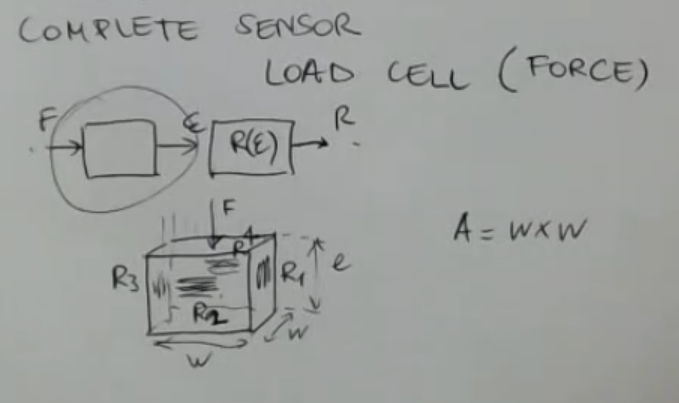 COMPLETE SENSOR
LOAD CELL (FORCE)
F ε R(ε) R
F
R4
R3 R1 e
R2
W W
A = W×W